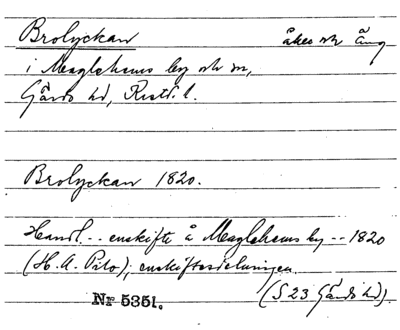 Brolyckan åker och äng
i Maglehems by och sn,
Gärds hd, Krist. l.
Brolyckan 1820.
Handl. -- enskifte å Maglehems by -- 1820
(H. A. Pito); enskiftesdelningen.
(S 23 Gärds hd).
Nr 5351.